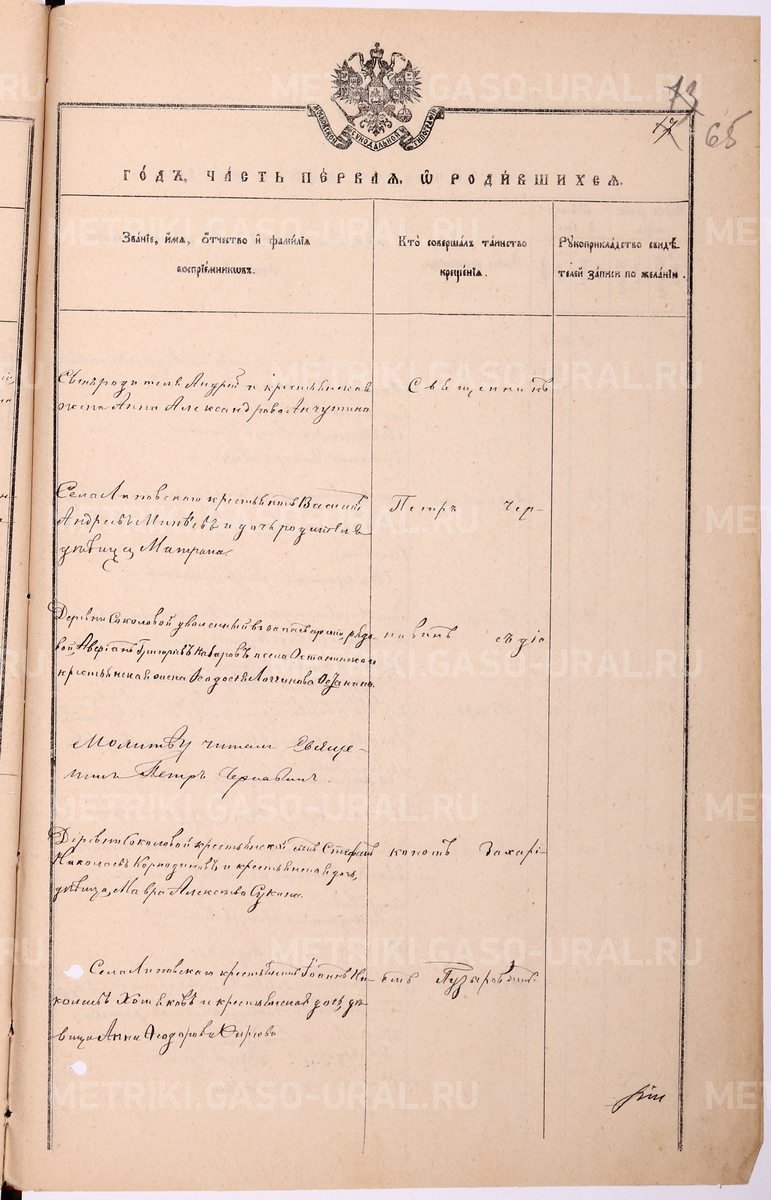 73
17
65
МОСКОВСКОЙ СИНОДАЛЬНОЙ ТИПОГРАФІИ
ГО́ДЪ, ЧА́СТЬ ПЕ́РВАЯ, Ѡ҆ РОДИ́ВШИХСЯ.
Зва́ніе, и҆́мѧ, ѻ҆́тчество и҆ фами́лія
воспрїе́мникѡвъ.
Кто̀ соверша́лъ та́инство
креще́нїѧ.
Рꙋкоприкла́дство свидѣ́-
телей за́писи по жела́нїю.
родителя Андрей и крестьянская
жена Анна Александрова Анчутина
Священникъ
Села Липовскаго крестьянинъ Василій
Андреевъ Минѣевъ и дочь родителя
дѣвица Матрона.
Петръ Чер-
Деревни Соколовой уволенный въ запасъ арміи, рядо-
вой, Аверіанъ Григорьевъ и села Останинскаго
крестьянская жена Ѳеодосія Логгинова
навинъ съ діа
Молитву читалъ Священ-
никъ Петръ Чернавинъ.
Деревни Соколовой крестьянскій сынъ Стефанъ
Николаевъ и крестьянская дочь,
дѣвица, Мавра Алексѣева Сукина.
кономъ Захарі-
Села Липовскаго крестьянинъ Іоаннъ Ни-
колаевъ Хомяковъ и крестьянская дочь, дѣ-
вица Анна Ѳеодорова
емъ Пузыревымъ.
METRIKI.GASO-URAL.RU